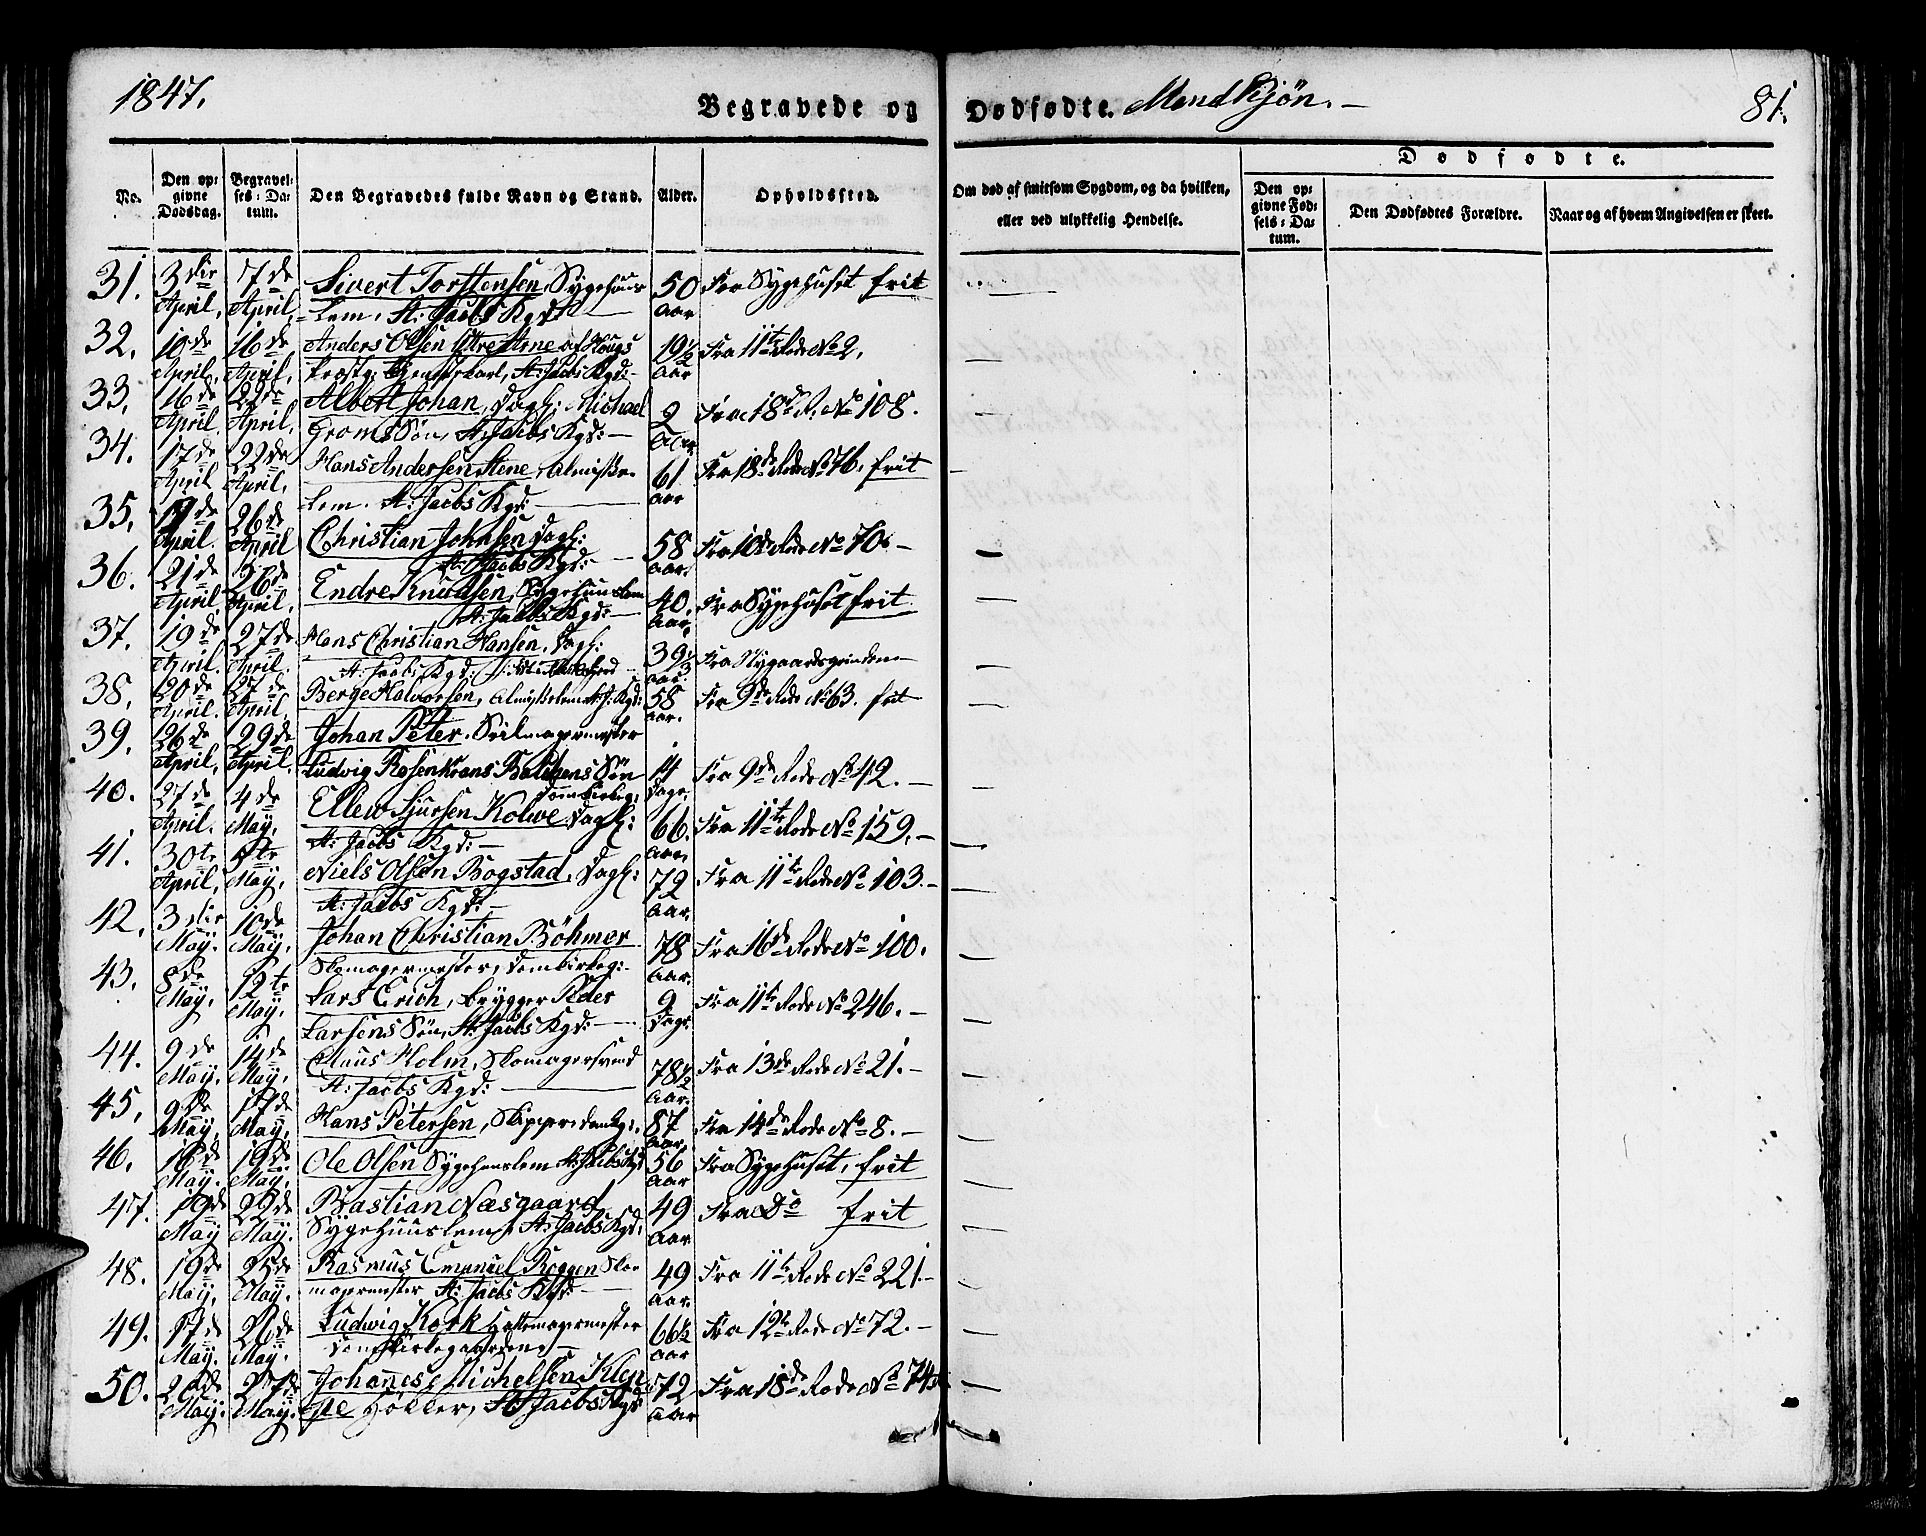 1847.
Begravede og Dødfødte. Mandkjøn. —
81.
No.
Den opgivne Dødsdag.
Begravelses-Datum.
Den Begravedes fulde Navn og Stand.
Alder.
Opholdssted.
Om død af smitsom Sygdom, og da hvilken, eller ved ulykkelig Hendelse.
Dødfødte.
Den opgivne Fødsels-Datum.
Den Dødfødtes Forældre.
Naar og af hvem Angivelsen er skeet.
31. 3die April, 7de April, Sivert Torstensen, Sygehuus- 50 Aar Fra Sygehuset frit —
lem. St: Jacobs Kgd: —
32. 10de April, 16de April, Anders Olsen Arne af Hougs 19½ Aar Fra 11te Rode No 2. —
St: Jacobs Kgd: —
33. 16de April, 22de April, Albert Johan, Dagl: Michael 2 Aar Fra 18de R. No 108. —
Groms Søn, St: Jacobs Kgd: —
34. 17de April 22de April, Hans Andersen Stene, Almisse- 61 Aar Fra 18de Rode No 76. frit —
lem. St: Jacobs Kgd: —
35. 19de April. 26de April Christian Johnsen Dagl: 58 Aar. Fra 10de Rode No 70. — —
St: Jacobs Kgd: —
36. 21de April 26de April, Endre Knudsen, Sygehuuslem 40. Aar, Fra Sygehuset frit —
St: Jacobs Kgd: —
37. 19de April. 27de April. Hans Christian Hansen, Dagl: 39⅓ Aar. Fra Nygaardsgrinden —
St: Jacobs Kgd:
38. 20de April. 27de April, Berge Halvorsen, Almisselem St: J: Kgd: 58 Aar. Fra 9de Rode No 63. frit —
39. 26de April, 29de April. Johan Peter. Seilmagermester
Ludvig Rosenkrans Baltzens Søn 14 Dage, Fra 9de Rode No 42. —
Domkirkeg:
40. 27de April. 4de May. Ellew Sjursen Kolwe Dagl: 66. Aar, Fra 11te Rode No 159. — —
St: Jacobs Kgd: —
41. 30te April, May, Niels Olsen Bogstad, Dagl: 72 Aar. Fra 11te Rode No 103. — —
St: Jacobs Kgd: —
42. 3die May. 10de May, Johan Christian Böhmer 78 Aar. Fra 16de Rode No 100. —
Skomagermester, Domkirkeg: —
43. 8de May, 12te May, Lars Erich, Brygger Peder 9 Dage Fra 11te Rode No 246. — —
Larsens Søn, St: Jacobs Kgd: —
44. 9de May. 14de May, Claus Holm, Skomagersvend 78½ Aar. Fra 13de Rode No 21. — —
St: Jacobs Kgd: —
45. 9de May, 17de May, Hans Petersen, Skipper, domkg:. 87 Aar, Fra 14de Rode No 8. — —
46. 16de May. 19de May, Ole Olsen Sygehuuslem St: Jacobs Kgd 56 Aar Fra Sygehuset, frit —
47. 19de May 22de May. Bastian Næsgaard, 49 Aar Fra Do frit —
Sygehuuslem, St: Jacobs Kgd:
48. 19de May, 25de May, Rasmus Emanuel Roggen Sko- 49 Aar. Fra 11te Rode No 221. — —
magermester St: Jacobs Kgd: —
49. 17de May. 26de May. Ludwig Kork Hattemagermester 66½ Aar Fra 12te Rode No 72. — —
Domkirkegaardene —
50. 20de May. 27de May. Johanes Michelsen Klep- 72 Aar Fra 18de Rode No 74. —
pe Høker, St: Jacobs Kgd: